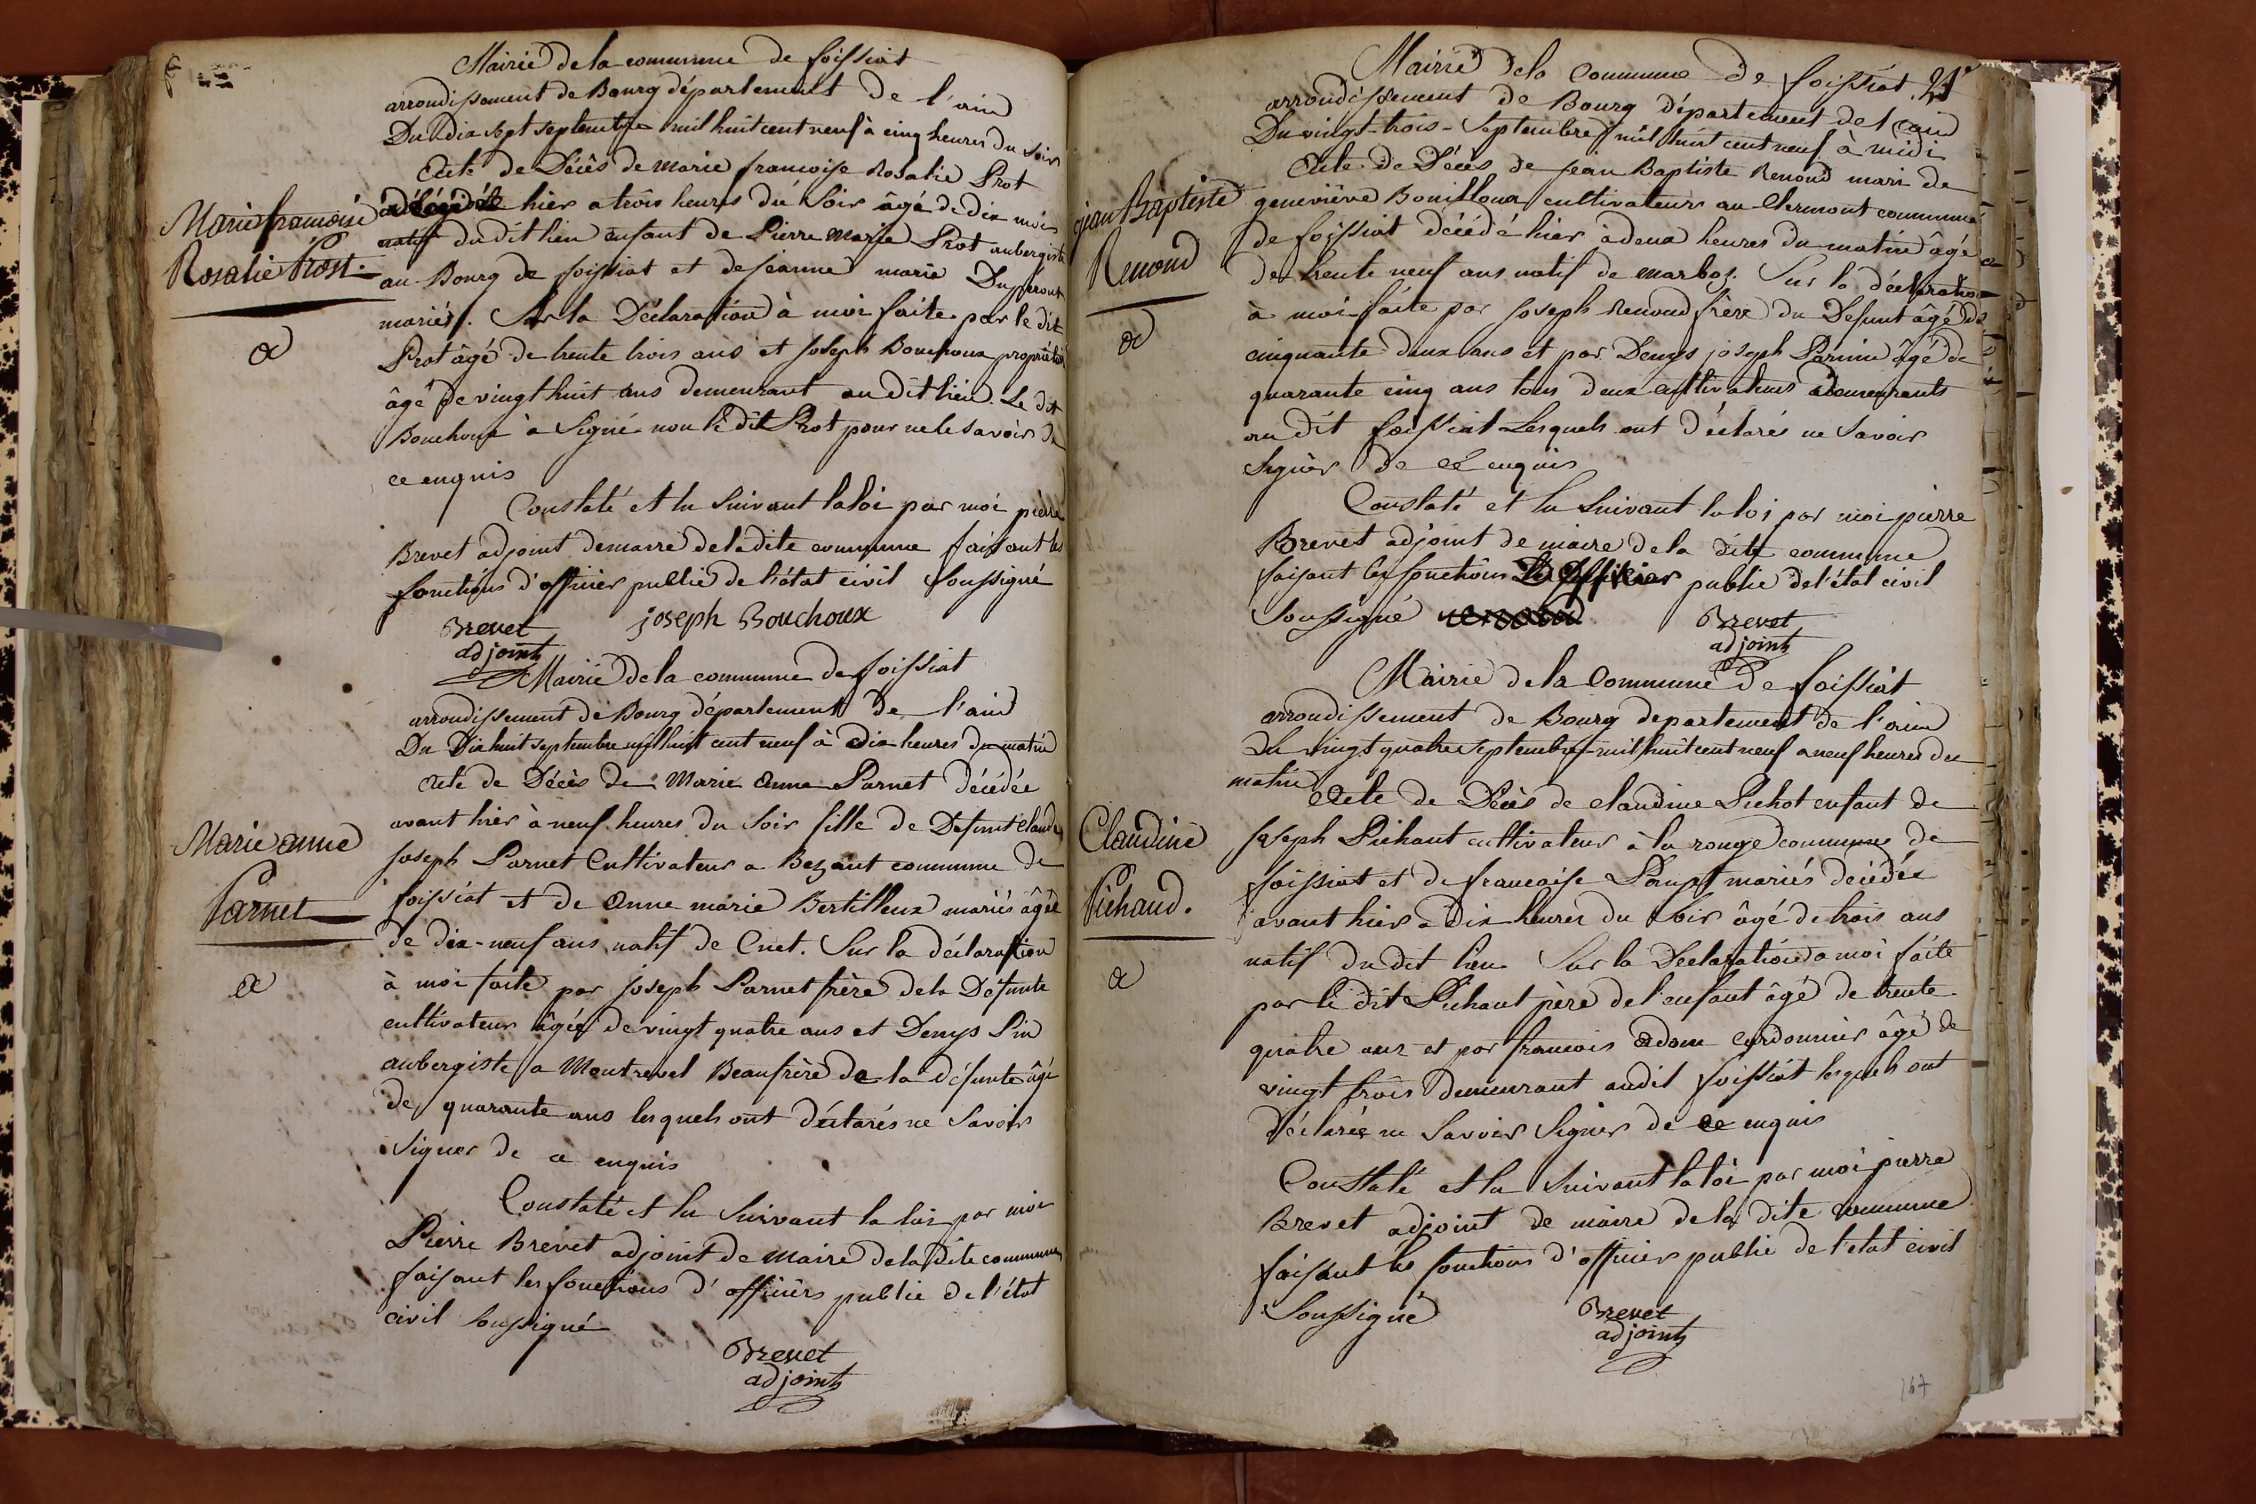 Mairie de la commune de foissiat
arrondissement de Bourg département de l'ain
Du Dix sept septembre mil huit cent neuf à cinq heures du soir
Acte de Décês de marie françoise Rosalie Prot
Marie françoise
Rosalie Prost.
décédée hier a trois heures du soir âgé de dix mois
natif du dit lieu enfant de Pierre Marie Prot aubergiste
au Bourg de foissiat et de jeanne marie Duperont
mariés. Sur la Déclaration à moi faite par le dit
Prot âgé de trente trois ans et joseph Bouchoux propriétaire
âgé de vingt huit ans demeurant au dit lieu. Le dit
Bouchoux à Signé non le dit Prot pour ne le savoir de
ce enquis
Constaté et lu suivant la loi par moi pierre
Brevet adjoint de maire de la dite commune faisant les
fonctions d'officier public de l'état civil soussigné
Brevet joseph Bouchoux
adjoint
Mairie de la commune de foissiat
arrondissement de Bourg département de l'ain
Du Dix huit septembre mil huit cent neuf à dix heures du matin
Acte de Décès de Marie Anne Parnet décédée
avant hier à neuf heures du soir fille de Defunt Claude
Marie anne
Parnet
joseph Parnet Cultivateur a Bezant commune de
foissiat et de Anne marie Bertilleux mariés âgée
de dix-neuf ans natif de Cuet. Sur la déclaration
à moi faite par joseph Parnet frère de la Défunte
cultivateur âgée de vingt quatre ans et Denys Pin
aubergiste a Montrevel Beaufrère de la défunte âgé
de quarante ans lesquels ont déclarés ne Savoir
signer de ce enquis
Constaté et lu suivant la loi par moi
Pierre Brevet adjoint de maire de la dite commune
faisant les fonctions d'officiers public de l'état
civil soussigné
Brevet
adjoint
Mairie de la Commune de foissiat
arrondissement de Bourg département de l'ain
Du vingt-trois-Septembre mil huit cent neuf à midi
Acte de Décès de jean Baptiste Renoud mari de
jean Baptiste
Renoud
geneviève Bouilloux cultivateur au Clermont commune
de foissiat décédé hier à deux heures du matin âgé
de trente neuf ans natif de marboz. Sur la déclaration
à moi faite par joseph Renoud frère du Defunt âgé de
cinquante deux ans et par Denys joseph Parnin âgé de
quarante cinq ans tous deux cultivateurs demeurants
au dit foissiat Lesquels ont déclarés ne Savoir
signer de ce enquis
Constaté et lu suivant la loi par moi pierre
Brevet adjoint de maire de la dite commune
faisant les fonctions D'officier public de l'état civil
soussigné Brevet
adjoint
Mairie de la Commune De foissiat
arrondissement de Bourg departement de l'ain
du vingt quatre septembre mil huit cent neuf a neuf heures du
matin
Acte de Décès de claudine Pichot enfant de
Claudine
Pichaud.
joseph Pichaut cultivateur à la rouge commune de
foissiat et de francoise Paupt mariés décédée
avant hier a Dix heures du soir âgé de trois ans
natif du dit lieu Sur la Declaration a moi faite
par le dit Pichaut père de l'enfant âgé de trente
quatre ans et par francois adam cordonnier âgé de
vingt trois demeurant audit foissiat lesquels ont
déclarés ne Savoir Signer de ce enquis
Constaté et lu suivant la loi par moi pierre
Brevet adjoint de maire de la dite commune
faisant les fonctions d'officier public de l'état civil
soussigné
Brevet
adjoint
167